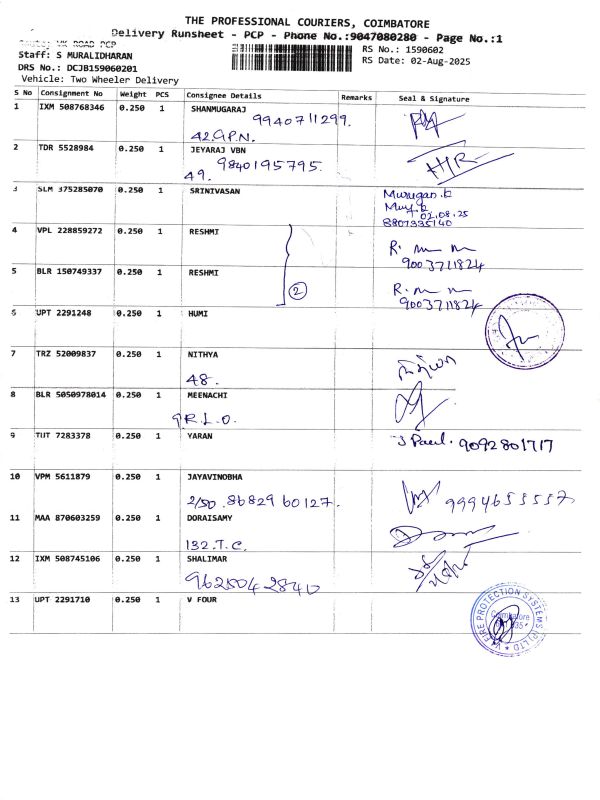 THE PROFESSIONAL COURIERS, COIMBATORE
Delivery Runsheet - PCP - Phone No.:9047080280 - Page No.:1
VK ROAD PCP
Staff: S MURALIDHARAN
DRS No.: DCJB159060201
Vehicle: Two Wheeler Delivery
RS No.: 1590602
RS Date: 02-Aug-2025
S No Consignment No Weight PCS Consignee Details Remarks Seal & Signature
1 IXM 508768346 0.250 1 SHANMUGARAJ
9940711299.
42.G.P.N.
2 TDR 5528984 0.250 1 JEYARAJ VBN
9840195795.
49.
3 SLM 375285070 0.250 1 SRINIVASAN
Murugan.k
02.08.25
8807335140
4 VPL 228859272 0.250 1 RESHMI
9003711824
5 BLR 150749337 0.250 1 RESHMI
2
9003711824
6 UPT 2291248 0.250 1 HUMI
7 TRZ 52009837 0.250 1 NITHYA
48.
8 BLR 5050978014 0.250 1 MEENACHI
9.R.L.O.
9 TUT 7283378 0.250 1 YARAN
J Paul. 9092801717
10 VPM 5611879 0.250 1 JAYAVINOBHA
2/50 .8682960127.
9994653557
11 MAA 870603259 0.250 1 DORAISAMY
132.T.C.
12 IXM 508745106 0.250 1 SHALIMAR
9628042840
13 UPT 2291710 0.250 1 V FOUR
FIRE PROTECTION SYSTEMS (P) LTD
Coimbatore